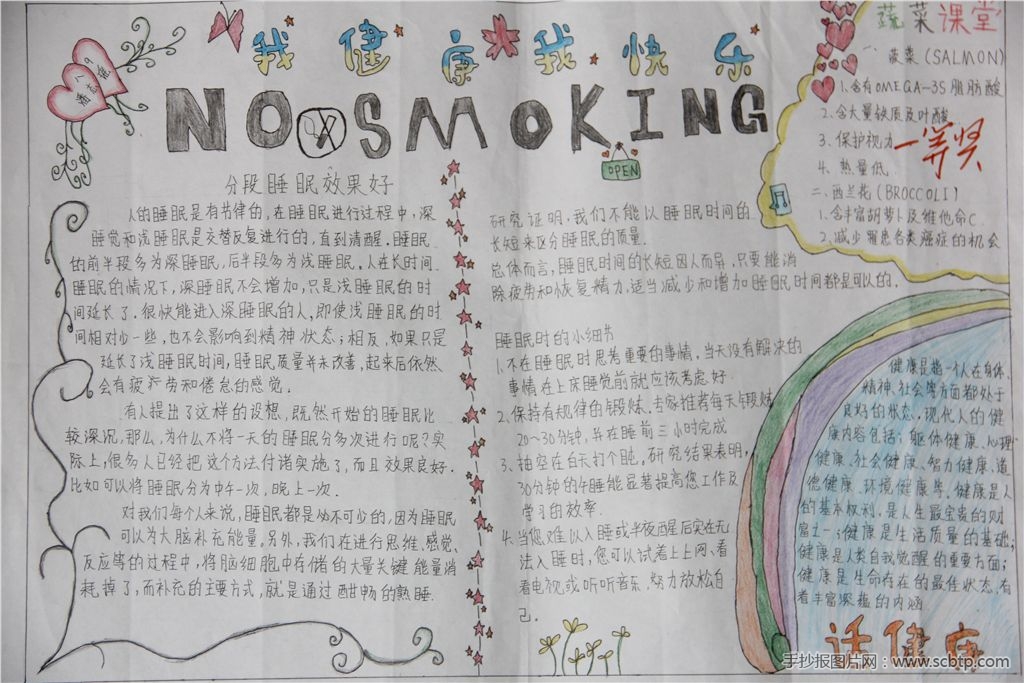 我健康我快乐
NO SMOKING
OPEN
分段睡眠效果好
人的睡眠是有节律的,在睡眠进行过程中,深
睡觉和浅睡眠是交替反复进行的,直到清醒.睡眠
的前半段多为深睡眠,后半段多为浅睡眠。人在长时间
睡眠的情况下,深睡眠不会增加,只是浅睡眠的时
间延长了.很快能进入深睡眠的人,即使浅睡眠的时
间相对少一些,也不会影响到精神状态;相反,如果只是
延长了浅睡眠时间,睡眠质量并未改善,起来后依然
会有疲劳和倦怠的感觉.
有人提出了这样的设想,既然开始的睡眠比
较深沉,那么,为什么不将一天的睡眠分多次进行呢?实
际上,很多人已经把这个方法付诸实施了,而且效果良好.
比如可以将睡眠分为中午一次,晚上一次.
对我们每个人来说,睡眠都是必不可少的,因为睡眠
可以为大脑补充能量.另外,我们在进行思维、感觉、
反应等的过程中,将脑细胞中存储的大量关键能量消
耗掉了,而补充的主要方式,就是通过酣畅的熟睡.
研究证明,我们不能以睡眠时间的
长短来区分睡眠的质量.
总体而言,睡眠时间的长短因人而异,只要能消
除疲劳和恢复精力,适当减少和增加睡眠时间都是可以的.
睡眠时的小细节
1.不在睡眠时思考重要的事情,当天没有解决的
事情在上床睡觉前就应该考虑好.
2、保持有规律的锻炼.专家推荐每天锻炼
20~30分钟,并在睡前三小时完成
3、抽空在白天打个盹,研究结果表明,
30分钟的午睡能显著提高您工作及
学习的效率.
4.当您难以入睡或半夜醒后实在无
法入睡时,您可以试着上上网、看
看电视或听听音乐,努力放松自
己.
蔬菜课堂
菠菜(SALMON)
1.含有OMEGA-3S脂肪酸
2、含大量铁质及叶酸
3.保护视力
4.热量低.
一等奖
二、西兰花(BROCCOLI)
1.含丰富胡萝卜及维他命C.
2.减少罹患各类癌症的机会
健康是指一个人在身体
精神、社会等方面都处于
良好的状态.现代人的健
康内容包括:躯体健康、心理
健康、社会健康、智力健康、道
德健康、环境健康等.健康是人
的基本权利,是人生最宝贵的财
富之一;健康是生活质量的基础;
健康是人类自我觉醒的重要方面;
健康是生命存在的最佳状态,有
着丰富深蕴的内涵
话健康
手抄报图片网:www.scbtp.com